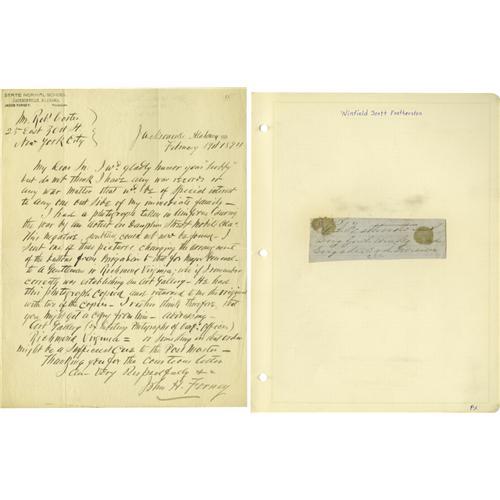 STATE NORMAL SCHOOL
JACKSONVILLE, ALABAMA
JACOB FORNEY, President
Mr. Robt Coster
25 East 30th St
New York City
Jacksonville Alabama
February 19th 1894
My Dear Sir. I wd gladly honor your
but do not think I have any war records or
any war matter that wd be of special interest
to any one out side of my immediate family —
I had a photograph taken in Uniform during
the war by an artist in Dauphin Street Mobile Ala.
This negative possibly could not now be found. I
sent one of these pictures changing the arrangement
of the buttons from Brigadier to that for Major General
to a Gentleman in Richmond Virginia; who if I remember
correctly was establishing an Art Gallery — He had
this photograph copied and returned to me the original
with two of the copies — I rather think therefore, that
you might get a copy from him — addressing —
Art Gallery (exhibiting Photographs of Conf. Officers)
Richmond Virginia — or something in that order
might be a sufficient cue to the Post Master —
Thanking you for the courteous letter
I am Very Respectfully
John H. Forney
Winfield Scott Featherston